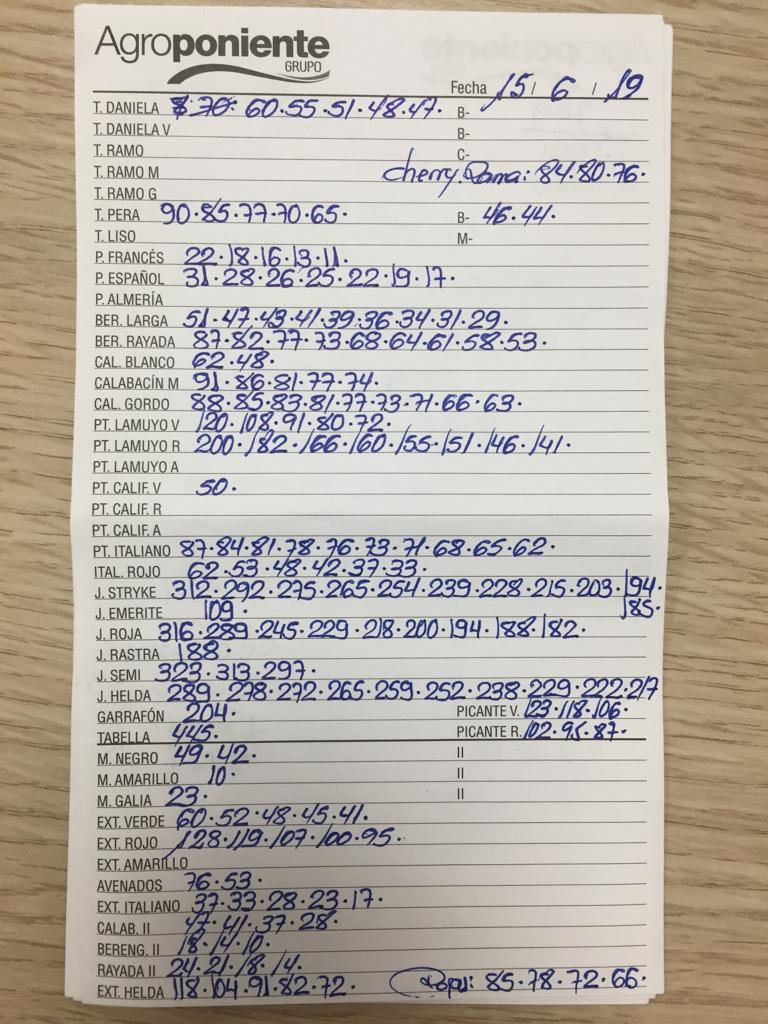 Agroponiente
GRUPO
Fecha 15 / 6 / 19
T. DANIELA 70: 60.55.51.48.47. B-
T. DANIELA V B-
T. RAMO C-
T. RAMO M cherry Rama: 84.80.76.
T. RAMO G
T. PERA 90.85.77.70.65. B- 46.44.
T. LISO M-
P. FRANCÉS 22.18.16.13.11.
P. ESPAÑOL 31.28.26.25.22.19.17.
P. ALMERÍA
BER. LARGA 51.47.43.41.39.36.34.31.29.
BER. RAYADA 87.82.77.73.68.64.61.58.53.
CAL. BLANCO 62.48.
CALABACÍN M 91.86.81.77.74.
CAL. GORDO 88.85.83.81.77.73.71.66.63.
PT. LAMUYO V 120.108.91.80.72.
PT. LAMUYO R 200.182.166.160.155.151.146.141.
PT. LAMUYO A
PT. CALIF. V 50.
PT. CALIF. R
PT. CALIF. A
PT. ITALIANO 87.84.81.78.76.73.71.68.65.62.
ITAL. ROJO 62.53.48.42.37.33.
J. STRYKE 312.292.275.265.254.239.228.215.203.194.
J. EMERITE 109. 185.
J. ROJA 316.289.245.229.218.200.194.188.182.
J. RASTRA 188.
J. SEMI 323.313.297.
J. HELDA 289.278.272.265.259.252.238.229.222.217
GARRAFÓN 204. PICANTE V. 123.118.106.
TABELLA 445. PICANTE R. 102.95.87.
M. NEGRO 49.42. II
M. AMARILLO 10. II
M. GALIA 23. II
EXT. VERDE 60.52.48.45.41.
EXT. ROJO 128.119.107.100.95.
EXT. AMARILLO
AVENADOS 76.53.
EXT. ITALIANO 37.33.28.23.17.
CALAB. II 47.41.37.28.
BERENG. II 18.14.10.
RAYADA II 24.21.18.14.
EXT. HELDA 118.104.91.82.72. 85.78.72.66.